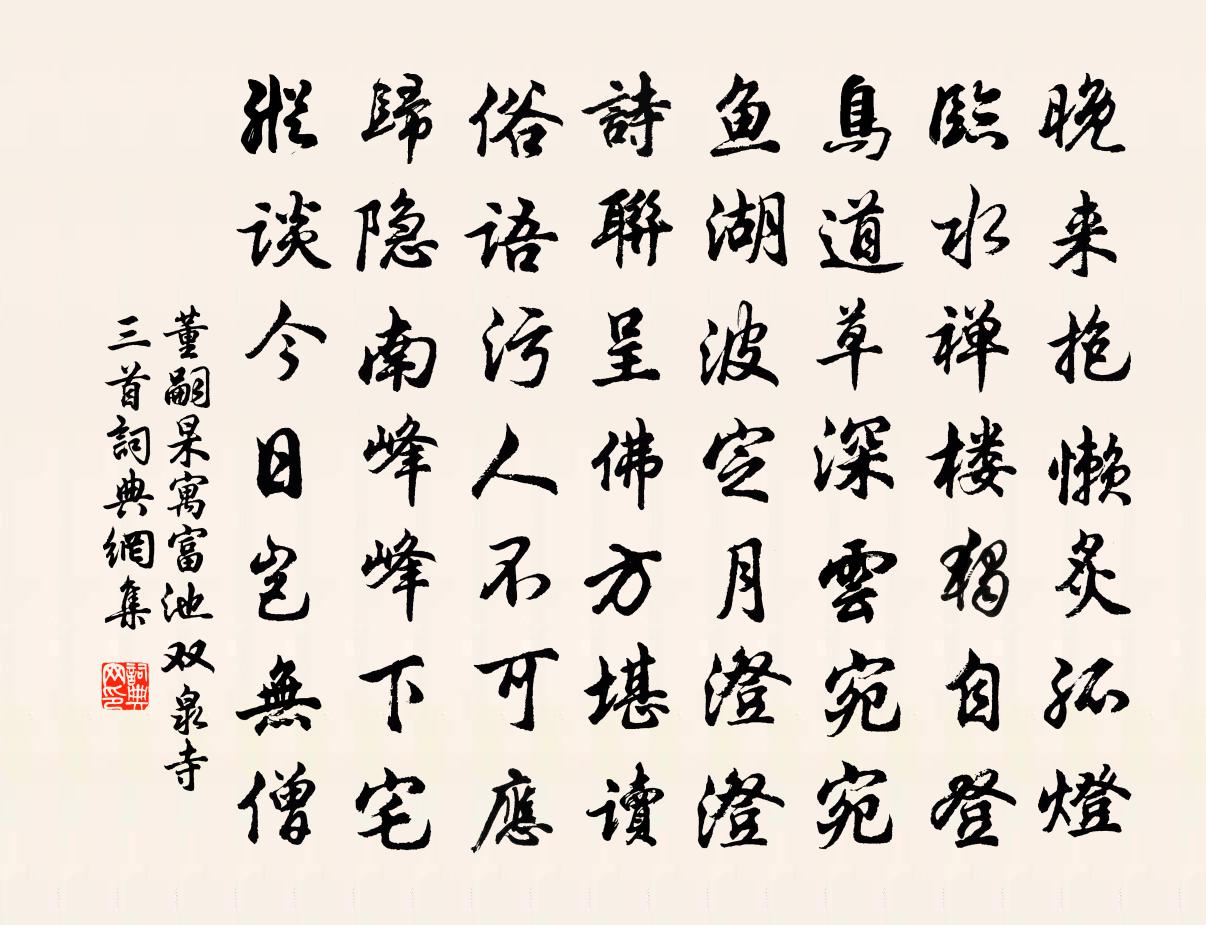 晚来抱懒炙孤燈
臨水禅楼獨自登
鳥道草深雲宛宛
鱼湖波定月澄澄
詩聯呈佛方堪讀
俗語污人不可應
歸隐南峰峰下宅
縱谈今日岂無僧
董嗣杲寓富池双泉寺
三首詞典網集
詞典
网印